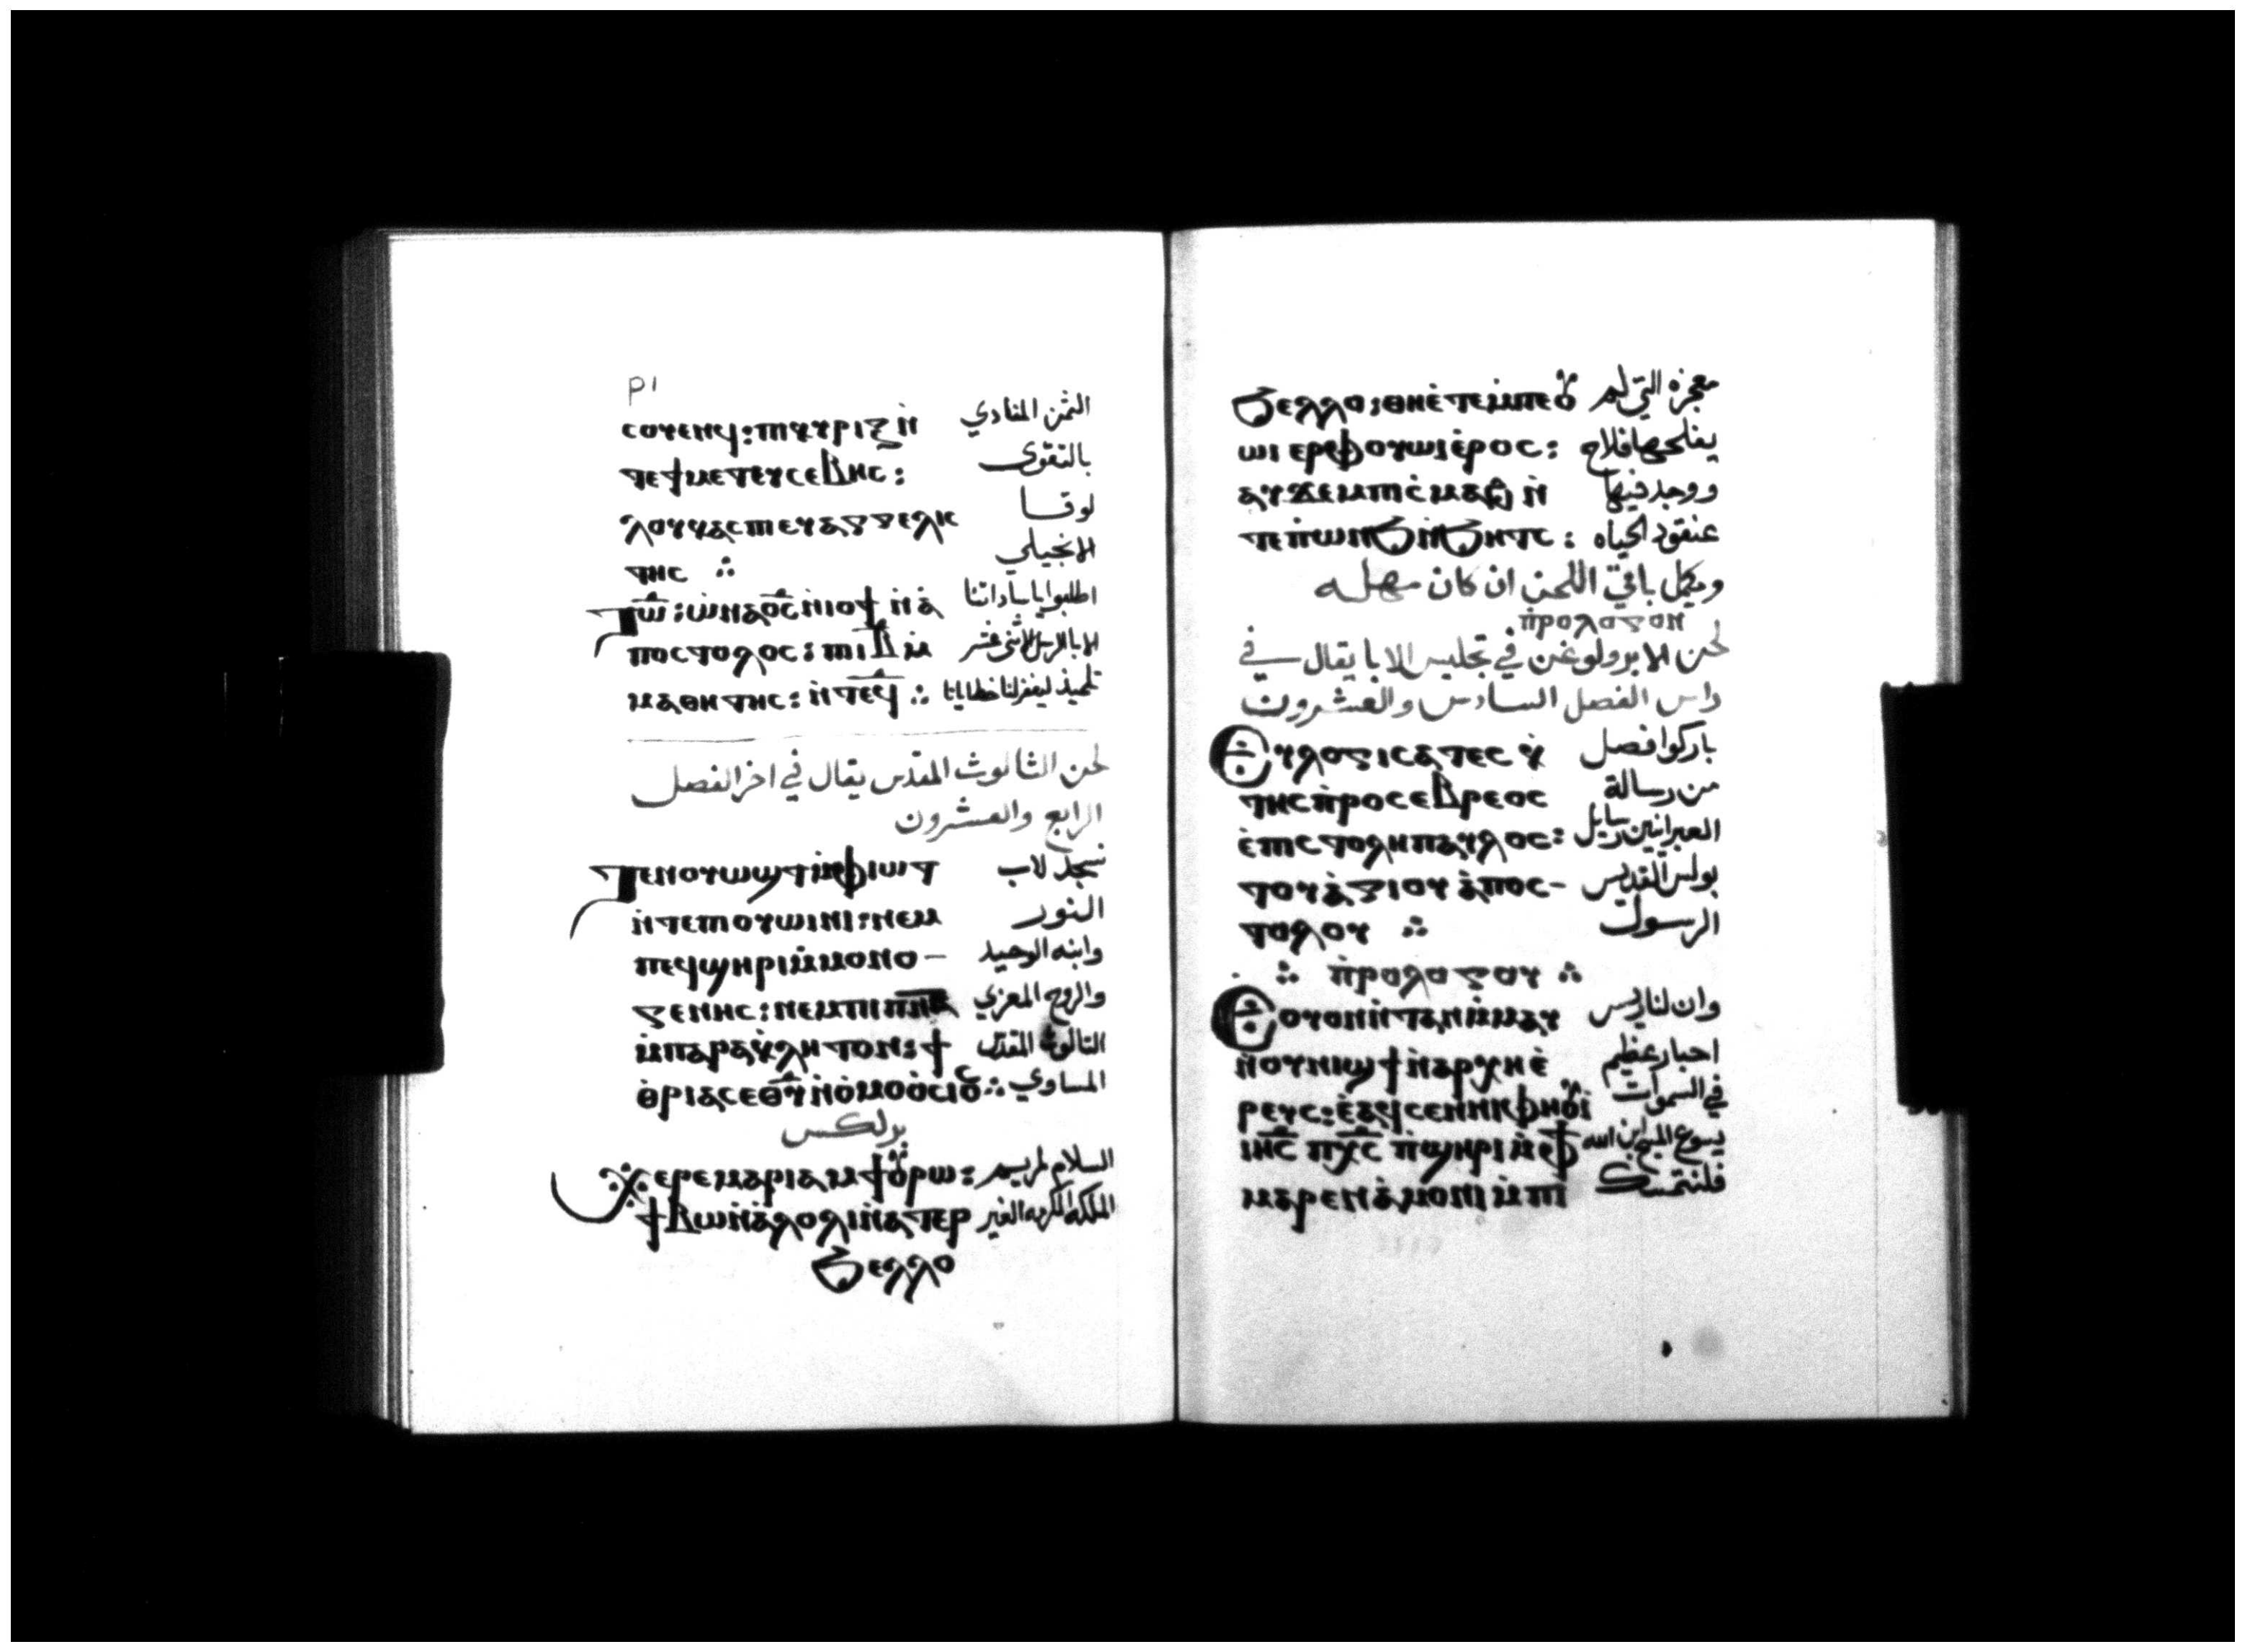 ⲥⲟⲩⲉⲛϥ : ⲡⲓⲕⲩⲣⲓⲝ ⲛ̀ الثمن المنادي
ⲧⲉϯⲙⲉⲧⲉⲩⲥⲉⲃⲏⲥ : بالتقوى
ⲗⲟⲩⲕⲁⲥ ⲡⲓⲉⲩⲁⲅⲅⲉⲗⲓ لوقا
ⲧⲏⲥ ⁘ الانجيلي
ⲧⲱ̅ : ⲱ̀ⲛⲁⲟ̅ⲥ̅ ⲛ̀ⲓⲟϯ ⲛ̀ⲁ̀ اطلبوا يا ساداتنا
ⲡⲟⲥⲧⲟⲗⲟⲥ : ⲡⲓⲓ̅ⲃ̅ ⲙ̀ الابا الرسل الاثنى عشر
ⲙⲁⲑⲏⲧⲏⲥ : ⲛ̀ⲧⲉ̅ϥ̅ ⁘ تلميذ ليغفر لنا خطايانا
لحن الثالوث المقدس يقال في اخر الفصل
الرابع والعشرون
ⲧⲉⲛⲟⲩⲱϣⲧ ⲙ̀ⲫⲓⲱⲧ نسجد لاب
ⲛ̀ⲧⲉⲡⲓⲟⲩⲱⲓⲛⲓ : ⲛⲉⲙ النور
ⲡⲉϥϣⲏⲣⲓ ⲙ̀ⲙⲟⲛⲟ- وابنه الوحيد
ⲅⲉⲛⲏⲥ : ⲛⲉⲙ ⲡⲓⲡ̅ⲛ̅ⲁ̅ والروح المعزي
ⲙ̀ⲡⲁⲣⲁⲕ̀ⲗⲏⲧⲟⲛ : ϯ الثالوث المقدس
ⲑ̀ⲣⲓⲁⲥ ⲉⲑ̅ⲩ̅ ⲛ̀ⲟ̀ⲙⲟⲟ̀ⲥⲓⲟⲥ ⁘ المساوي
بولكس
ⲭⲉⲣⲉ ⲙⲁⲣⲓⲁ ⲙ ϯⲟⲩⲣⲱ : السلام لمريم
ϯⲃⲱ ⲛ̀ⲁ̀ⲗⲟⲗⲓ ⲛ̀ⲁⲧⲉⲣ الملكه الكرمه الغير
ϧⲉⲗⲗⲟ
ϧⲉⲗⲗⲟ : ⲑⲏⲉ̀ⲧⲉⲙ̀ⲡⲉⲟⲩ معجزه التي لم
ⲱⲓ ⲉⲣϥⲟⲩⲱⲓ ⲉ̀ⲣⲟⲥ : يفلحها فلاح
ⲁⲩϫⲉⲙ ⲡⲓⲥ̀ⲙⲁϩ ⲛ̀ ووجد فيها
ⲧⲉⲡ̀ⲱⲛϧ ⲛ̀ϧⲏⲧⲥ : عنقود الحياه
ويكمل باقي اللحن ان كان مهله
ⲡ̀ⲣⲟⲗⲟⲅⲟⲛ
لحن الابرولوغن في تجليس الابا يقال في
راس الفصل السادس والعشرون
ⲉⲩⲗⲟⲅⲓⲥⲁⲧⲉⲥ ⲕ̀ باركوا فصل
ⲧⲏⲥ ⲡ̀ⲣⲟⲥ ⲉⲃⲣⲉⲟⲥ من رسالة
ⲉ̀ⲡⲓⲥⲧⲟⲗⲏ ⲡⲁⲩⲗⲟⲥ : العبرانيين رسايل
ⲧⲟⲩ ⲁ̀ⲅⲓⲟⲩ ⲁ̀ⲡⲟⲥ- بولس القديس
ⲧⲟⲗⲟⲩ ⁘ الرسول
⁘ ⲡ̀ⲣⲟⲗⲟⲅⲟⲩ ⁘
ⲉⲟⲩⲟⲛⲛ̀ⲧⲁⲛ ⲙ̀ⲙⲁⲩ وان لنا ريس
ⲛ̀ⲟⲩⲛⲓϣϯ ⲛ̀ⲁⲣⲭⲏⲉ̀ احبار عظيم
ⲣⲉⲩⲥ : ⲉ̀ⲁϥⲥⲉⲛⲛⲓⲫⲏⲟⲩⲓ̀ في السموات
ⲓⲏ̅ⲥ̅ ⲡⲭ̅ⲥ̅ ⲡ̀ϣⲏⲣⲓ ⲙ̀ⲫϯ يسوع المسيح ابن الله
ⲙⲁⲣⲉⲛⲁ̀ⲙⲟⲛⲓ ⲙ̀ⲡⲓ فلنتمسك